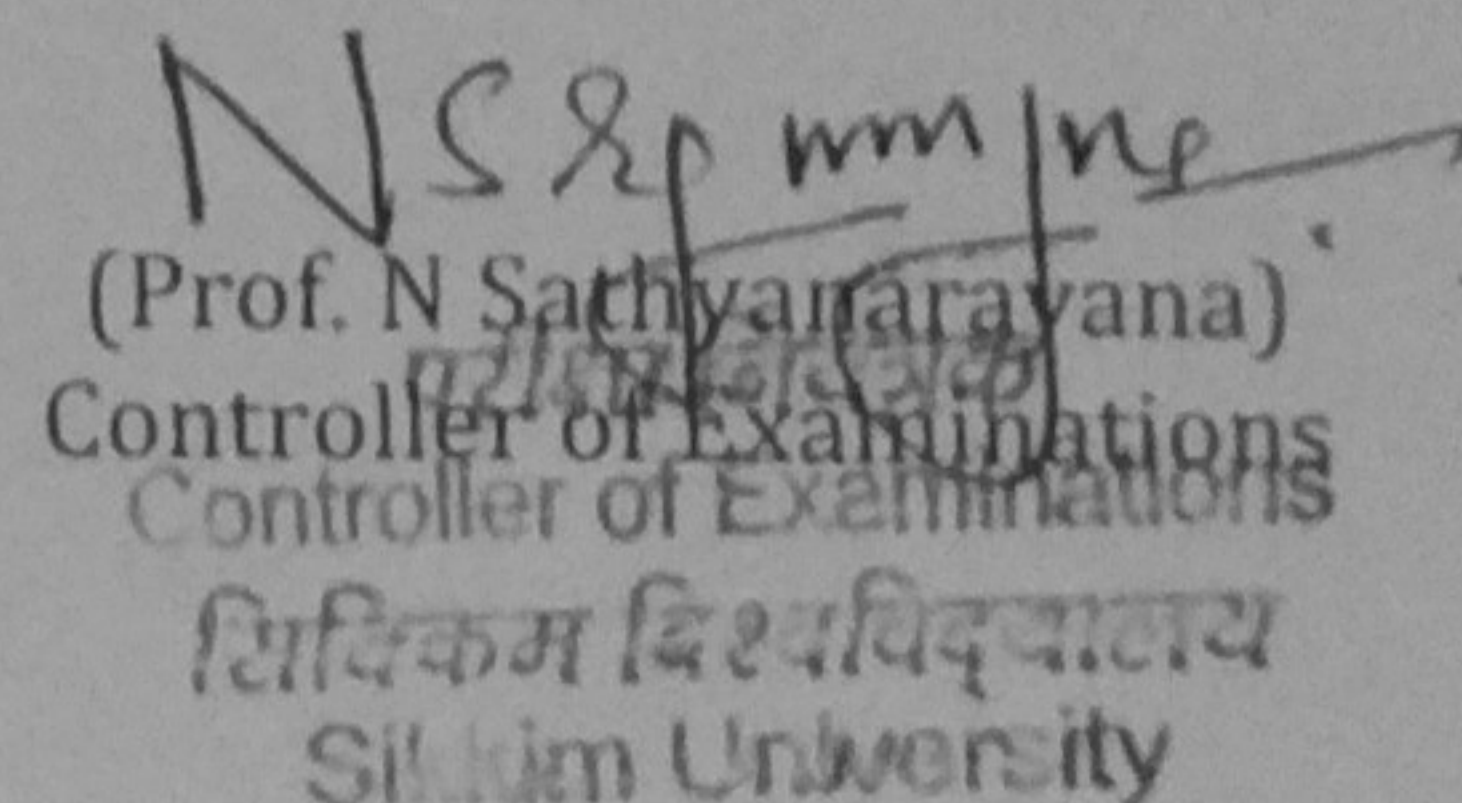 (Prof. N Sathyanarayana)
परीक्षा नियंत्रक
Controller of Examinations
Controller of Examinations
सिक्किम विश्वविद्यालय
Sikkim University